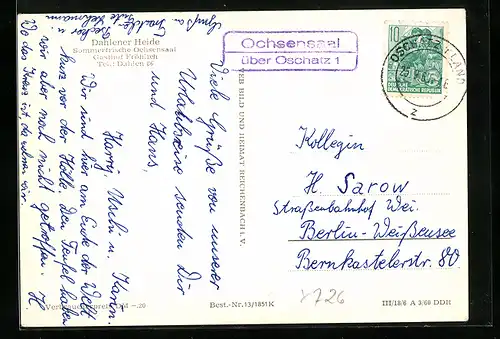 Dahlener Heide
Sommerfrische Ochsensaal
Gasthof Fröhlich
Tel.: Dahlen 66
Ochsensaal
über Oschatz 1
10
DEUTSCHE DEMOKRATISCHE REPUBLIK
OSCHATZ LAND
2
Viele Grüße von unserer
Urlaubsreise senden Dir
und Hans,
Harry, Uschi u. Karin.
Wir sind hier am Ende der Welt
kurz vor der Hölle. Den Teufel haben
wir aber noch nicht getroffen. H.
Wo der Kreis ist, da wohnen wir.
Gruß a.
VEB BILD UND HEIMAT REICHENBACH i. V.
Kollegin
H. Sarow
Straßenbahnhof Wei.
Berlin-Weißensee
Bernkastelerstr. 80
Verbraucherpreis DM -.20
Best.-Nr. 13/1851 K
III/18/6 A 3/60 DDR